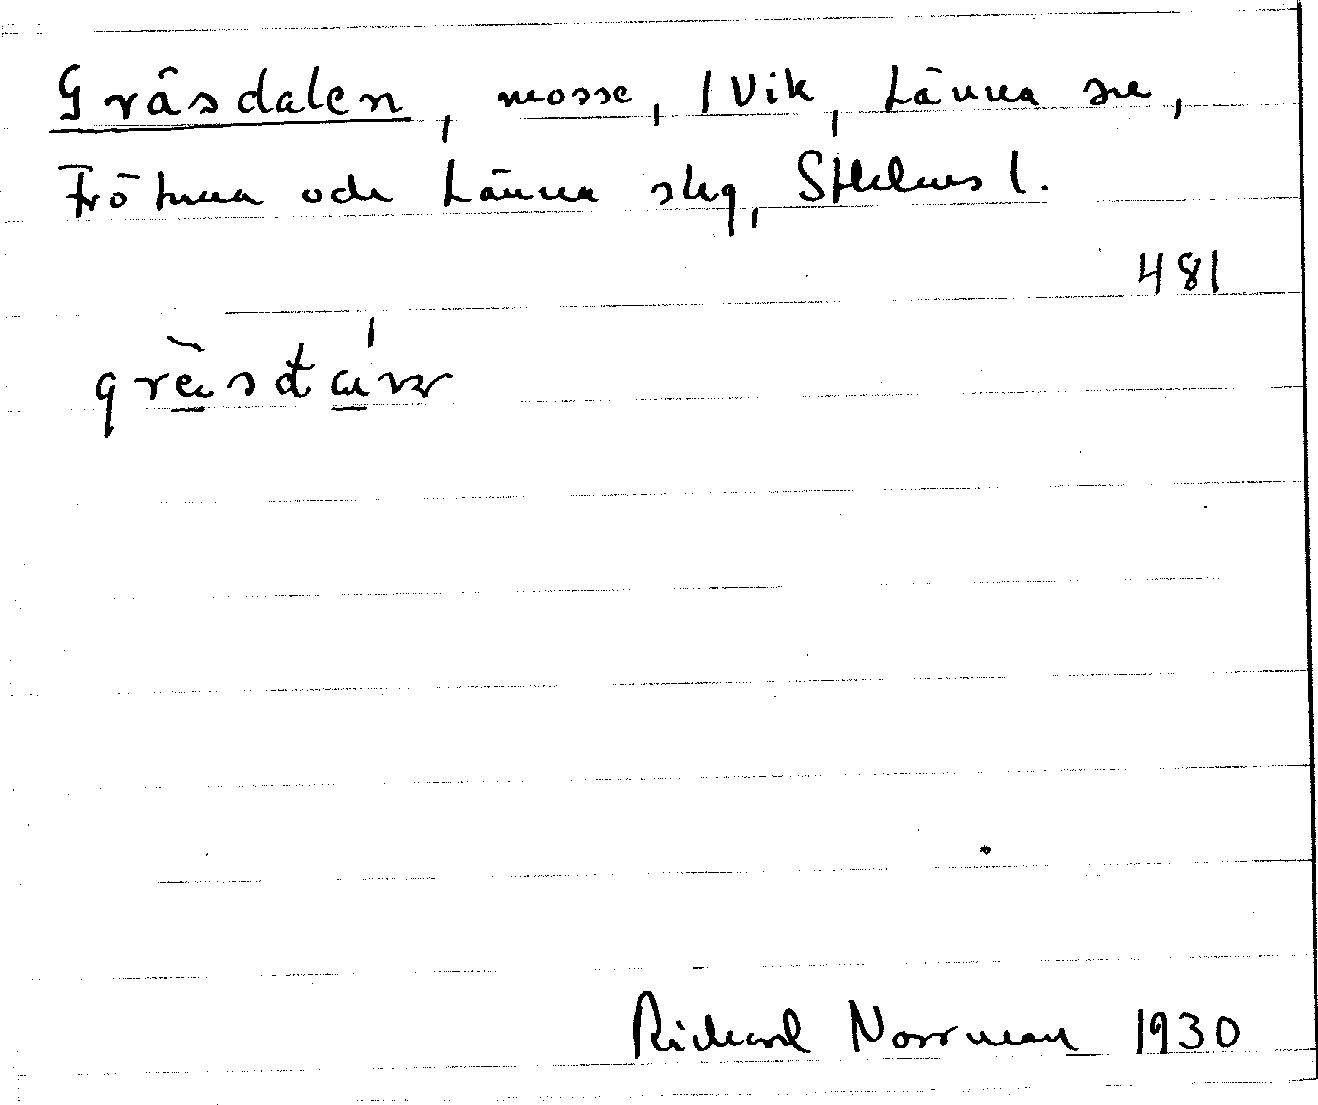 Gräsdalen, mosse, 1 Vik, Länna sn,
Frötuna och Länna skg, Sthlms l.
481
Richard Norrman 1930